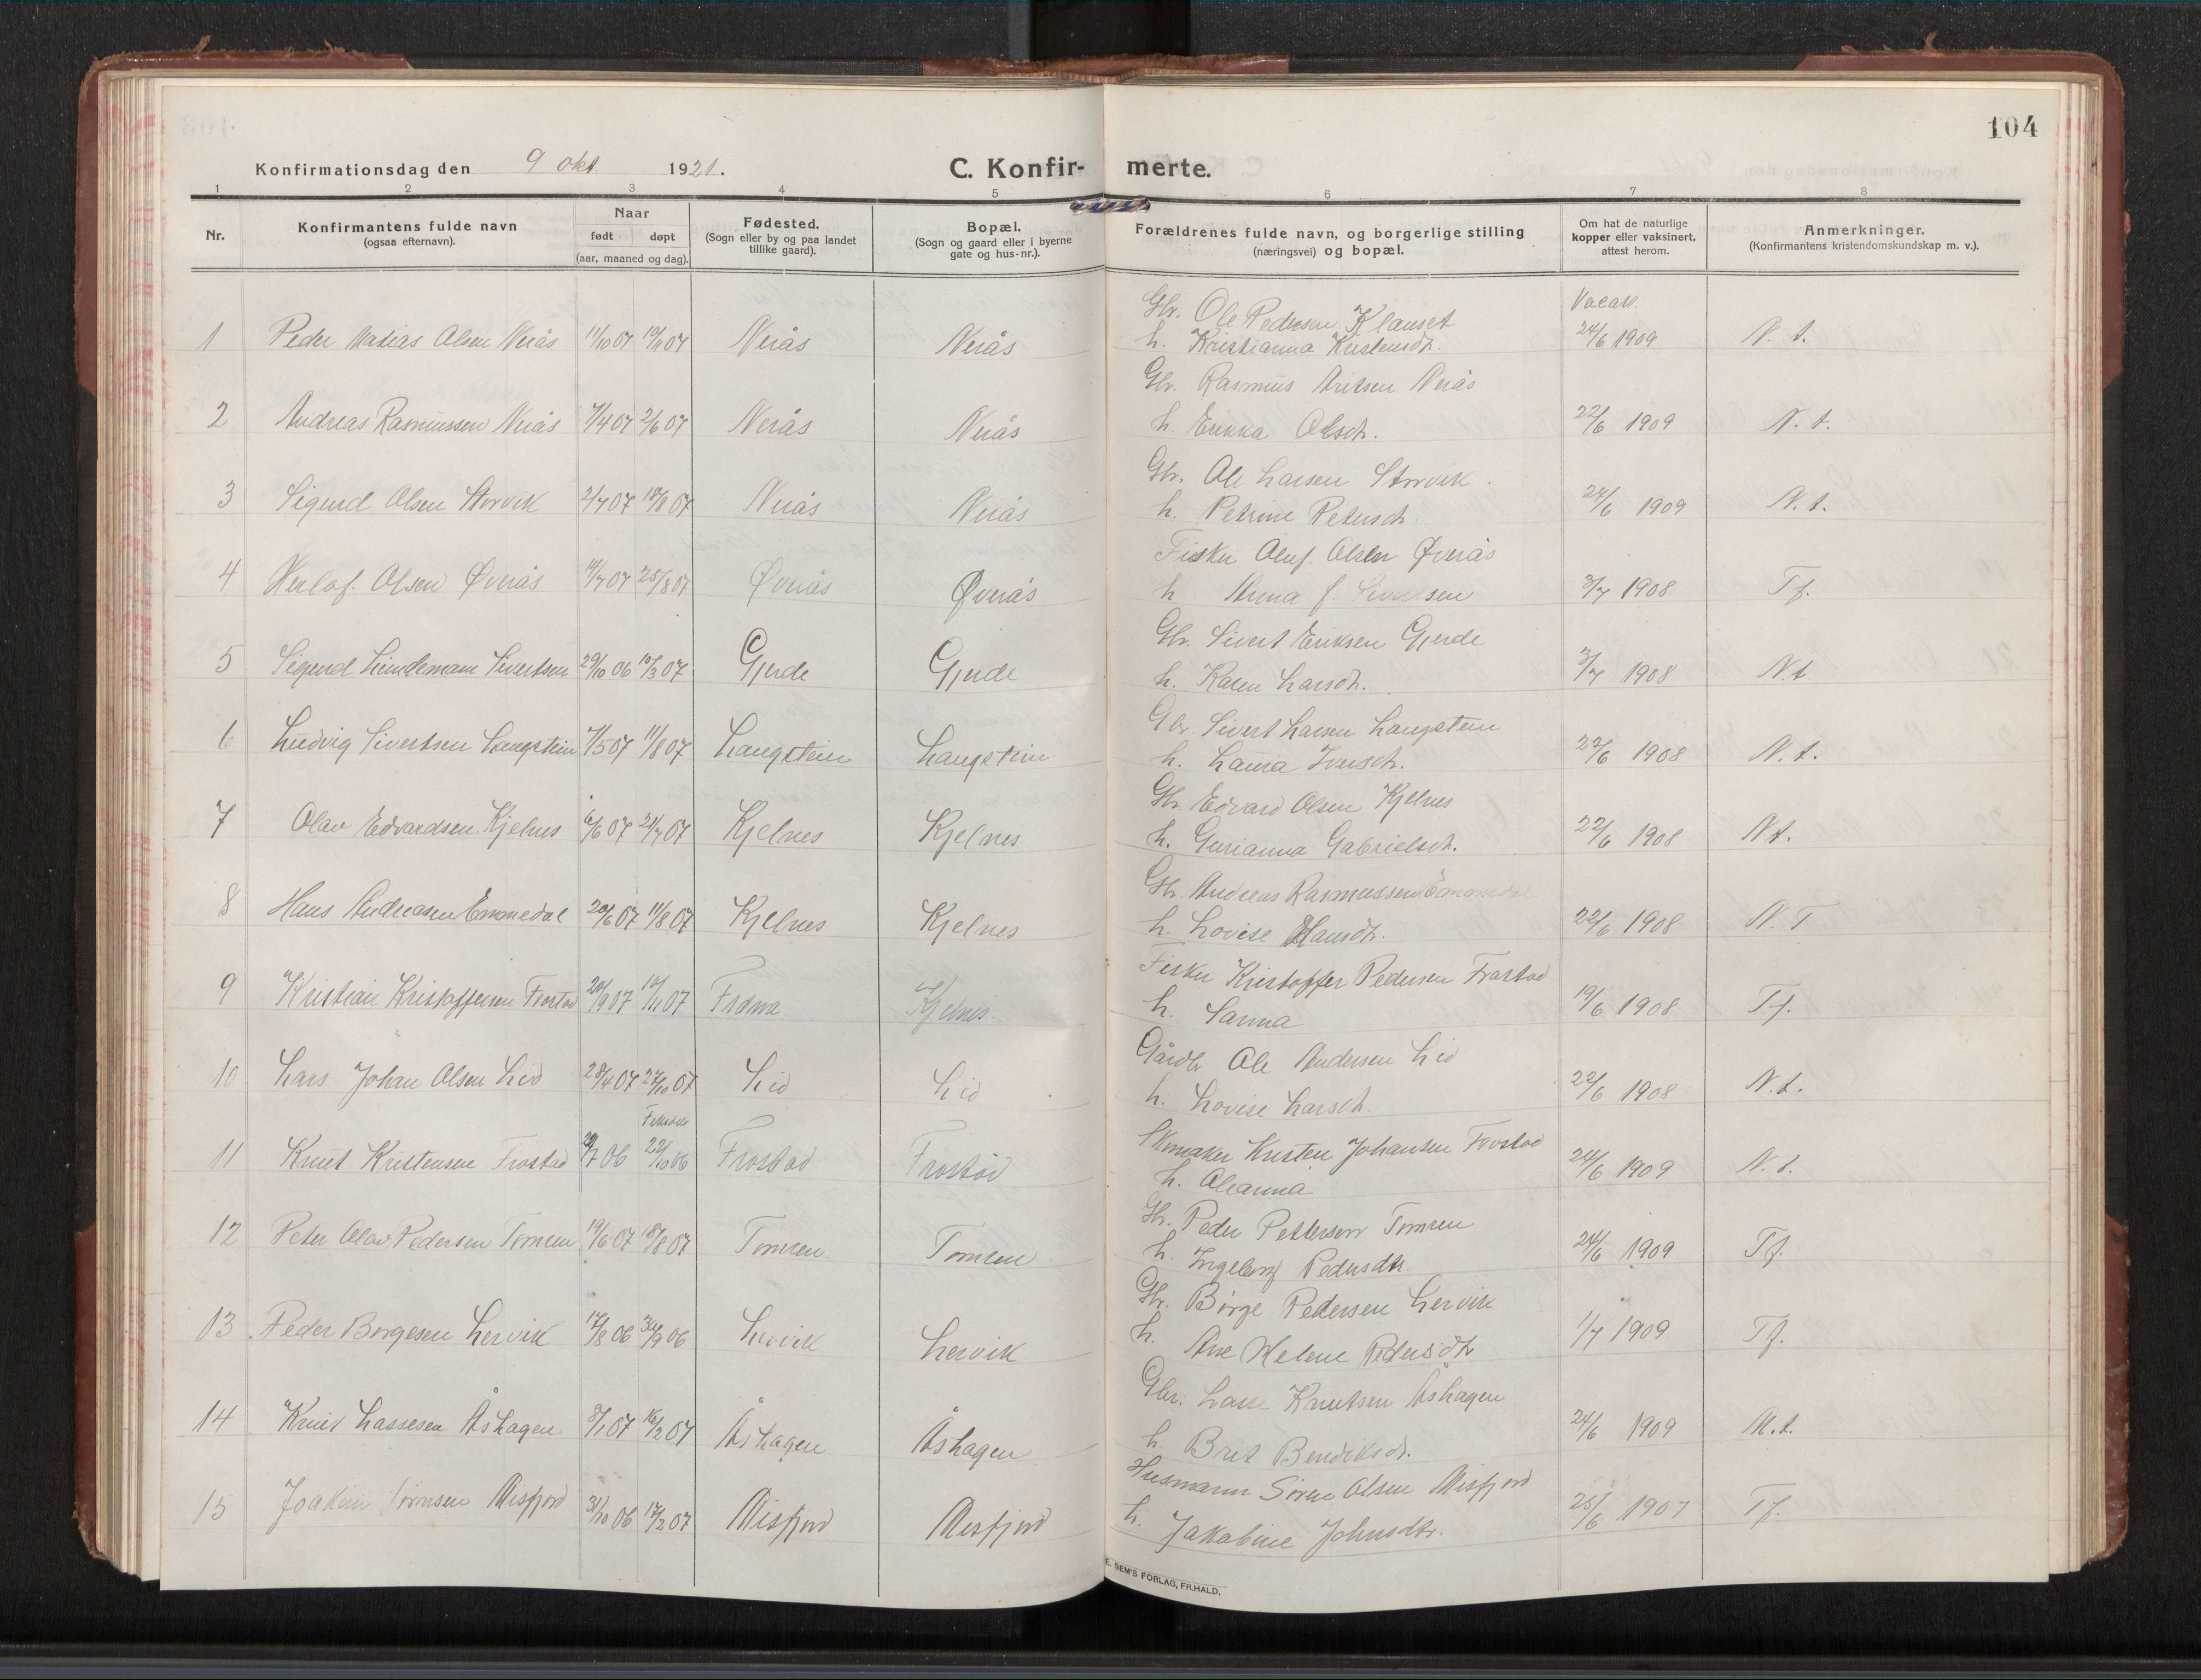 104
Konfirmationsdag den 9 okt. 1921.
C. Konfir- merte.
1 2 3 4 5 6 7 8
Nr.
Konfirmantens fulde navn
(ogsaa efternavn).
Naar
født døpt
(aar, maaned og dag).
Fødested.
(Sogn eller by og paa landet
tillike gaard).
Bopæl.
(Sogn og gaard eller i byerne
gate og hus-nr.).
Forældrenes fulde navn, og borgerlige stilling
(næringsvei) og bopæl.
Om hat de naturlige
kopper eller vaksinert,
attest herom.
Anmerkninger.
(Konfirmantens kristendomskundskap m. v.).
Gbr. Ole Pedersen Klauset
1 Peder Matias Olsen Nerås 11/10 07 10/11 07 Nerås Nerås h. Kristianna Kristensdtr. 24/6 1909 N. t.
Gbr. Rasmus Nerås
2 Andreas Rasmussen Nerås 7/4 07 2/6 07 Nerås Nerås h. Erikka Olsdtr. 22/6 1909 N. t.
Gbr. Ole Larsen Storvik
3 Sigurd Olsen Storvik 2/7 07 18/8 07 Nerås Nerås h. Petrine Petersdtr. 24/6 1909 N. t.
Fisker Oluf Olsen Øverås
4 Herlof Olsen Øverås 14/7 07 25/8 07 Øverås Øverås h Anna f. Sivertsen 3/7 1908 Tf.
Gbr. Sivert Eriksen Gjerde
5 Sigurd Lindemann Sivertsen 29/10 06 10/3 07 Gjerde Gjerde h. Karen Larsdtr. 3/7 1908 N.t
Gbr. Sivert Larsen Langstein
6 Ludvig Sivertsen Langstein 7/5 07 11/8 07 Langstein Langstein h. Laura Iversdtr. 22/6 1908 N. t.
Gbr. Edvard Olsen Kjelnes
7 Olav Edvardsen Kjelnes 6/6 07 21/7 07 Kjelnes Kjelnes h. Gurianna Gabrielsdtr. 22/6 1908 N t.
Gbr. Andreas Rasmussen Emmnedal
8 Hans Andreasen Emmnedal 20/6 07 11/8 07 Kjelnes Kjelnes h. Lovise Hansdtr. 22/6 1908 N. T
Fisker Kristoffer Pedersen Frostad
9 Kristian Kristoffersen Frostad 20/9 07 10/11 07 Kjelnes h. Sanna 19/6 1908 Tf.
Gårdbr Ole Andersen Lid
10 Lars Johan Olsen Lid 28/4 07 27/10 07 Lid Lid h. Lovise Larsdtr. 22/6 1908 N. t.
Skomaker Kristen Johansen Frostad
11 Knut Kristensen Frostad 06 22/10 06 Frostad Frostad h. Oleanna 24/6 1909 N. t.
Gbr. Peder Pettersen Tomren
12 Peter Olav Pedersen Tomren 19/6 07 18/8 07 Tomren Tomren h. Ingeborg Pedersdtr 24/6 1909 Tf.
Gbr. Børge Pedersen Lervik
13 Peder Børgesen Lervik 17/8 06 30/9 06 Lervik Lervik h. Ane Helene Pedersdtr 1/7 1909 Tf.
Gbr. Lasse Knutsen Åshagen
14 Knut Lassesen Åshagen 8/1 07 16/2 07 Åshagen Åshagen h Brit Bendiksdtr. 24/6 1909 M.t.
Husmann Søren Olsen Misfjord
15 Joakim Sørensen Misfjord 31/10 06 17/2 07 Misfjord Misfjord h. Jakobine Johnsdtr. 25/6 1907 Tf.
E. SEM'S FORLAG, FR.HALD.